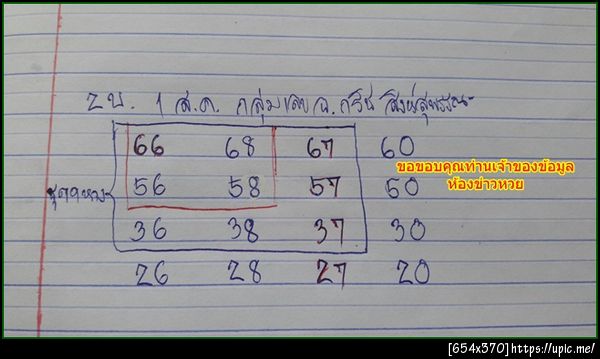 2 บ. 1 ส.ค. กลุ่มเลข อ.กริช สิงห์สุพรรณ
66 68 67 60
ขอขอบคุณท่านเจ้าของข้อมูล
ห้องข่าวหวย
56 58 57 50
36 38 37 30
26 28 27 20
[654x370]https://upic.me/